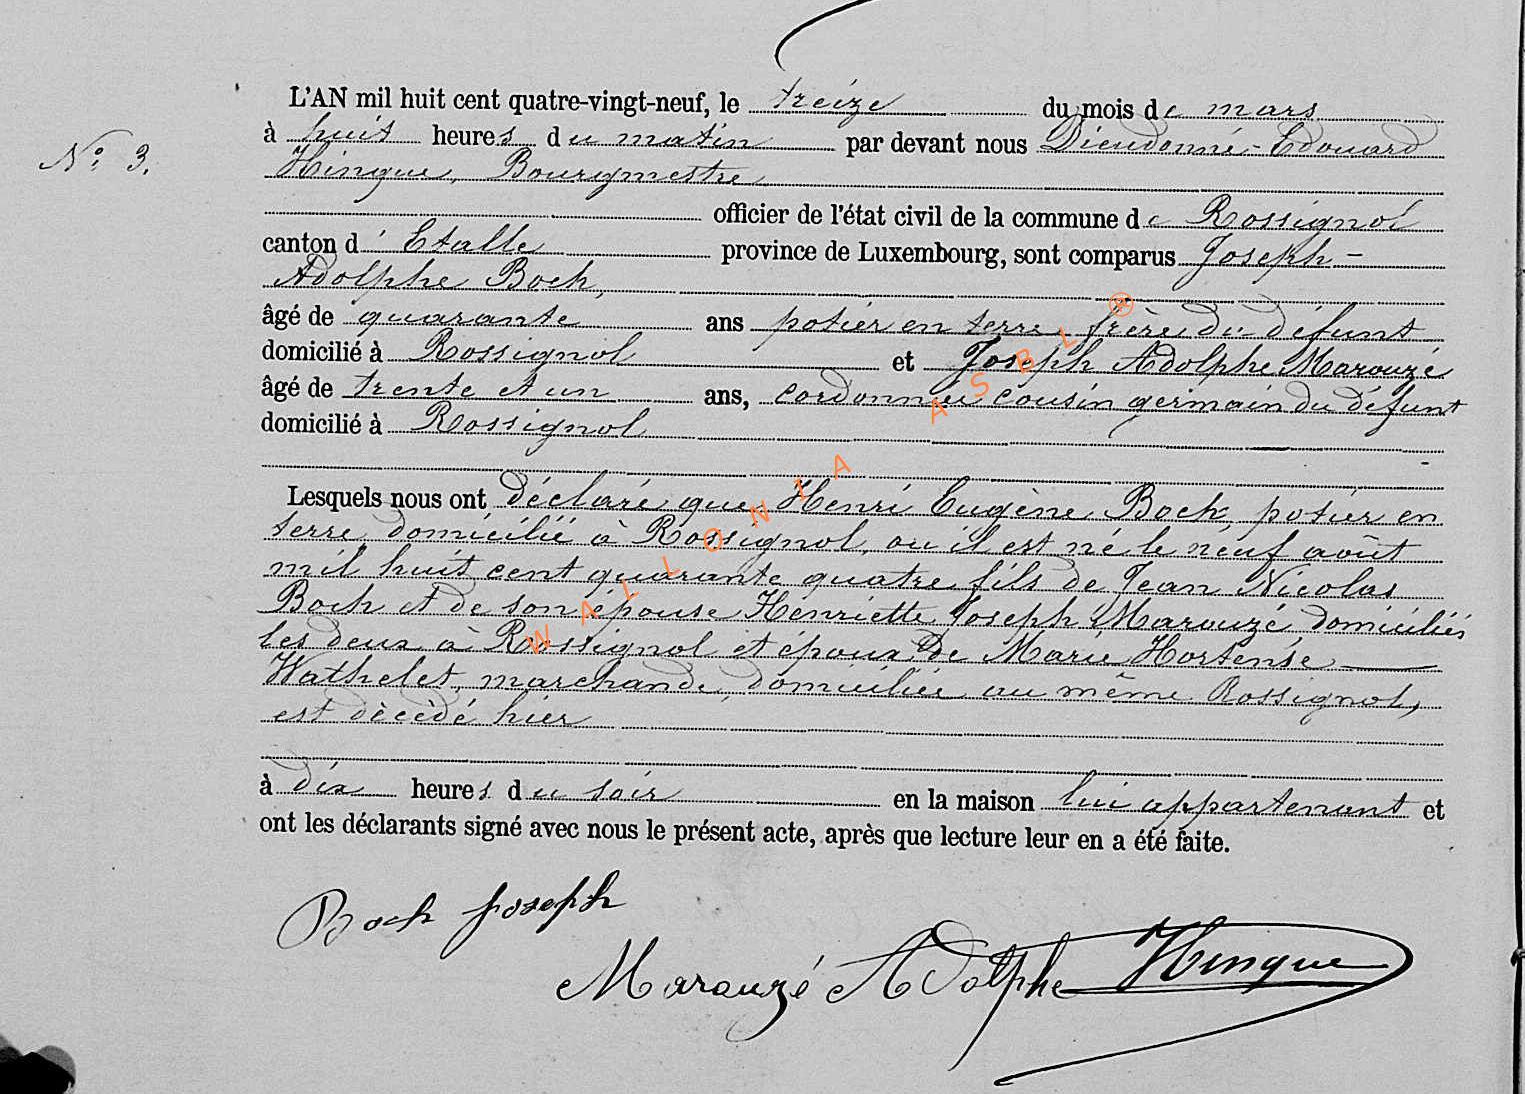 L'AN mil huit cent quatre-vingt-neuf, le treize du mois de mars
N° 3.
à huit heures du matin par devant nous Dieudonné-Edouard
Hinque, Bourgmestre
officier de l'état civil de la commune de Rossignol
canton d'Etalle province de Luxembourg, sont comparus Joseph-
Adolphe Boch,
âgé de quarante ans potier en terre frère du défunt
domicilié à Rossignol et Joseph Adolphe Marouzé
âgé de trente et un ans, cordonnier cousin germain du défunt
domicilié à Rossignol
Lesquels nous ont déclaré que Henri Eugène Boch, potier en
terre, domicilié à Rossignol, où il est né le neuf août
mil huit cent quarante quatre fils de Jean Nicolas
Boch et de son épouse Henriette Joseph Marouzé, domiciliés
les deux à Rossignol et époux de Marie Hortense
Wathelet, marchande, domiciliée au même Rossignol,
est décédé hier
à dix heures du soir en la maison lui appartenant et
ont les déclarants signé avec nous le présent acte, après que lecture leur en a été faite.
Boch Joseph
Marouzé Adolphe Hinque
WALLONIA ASBL ®